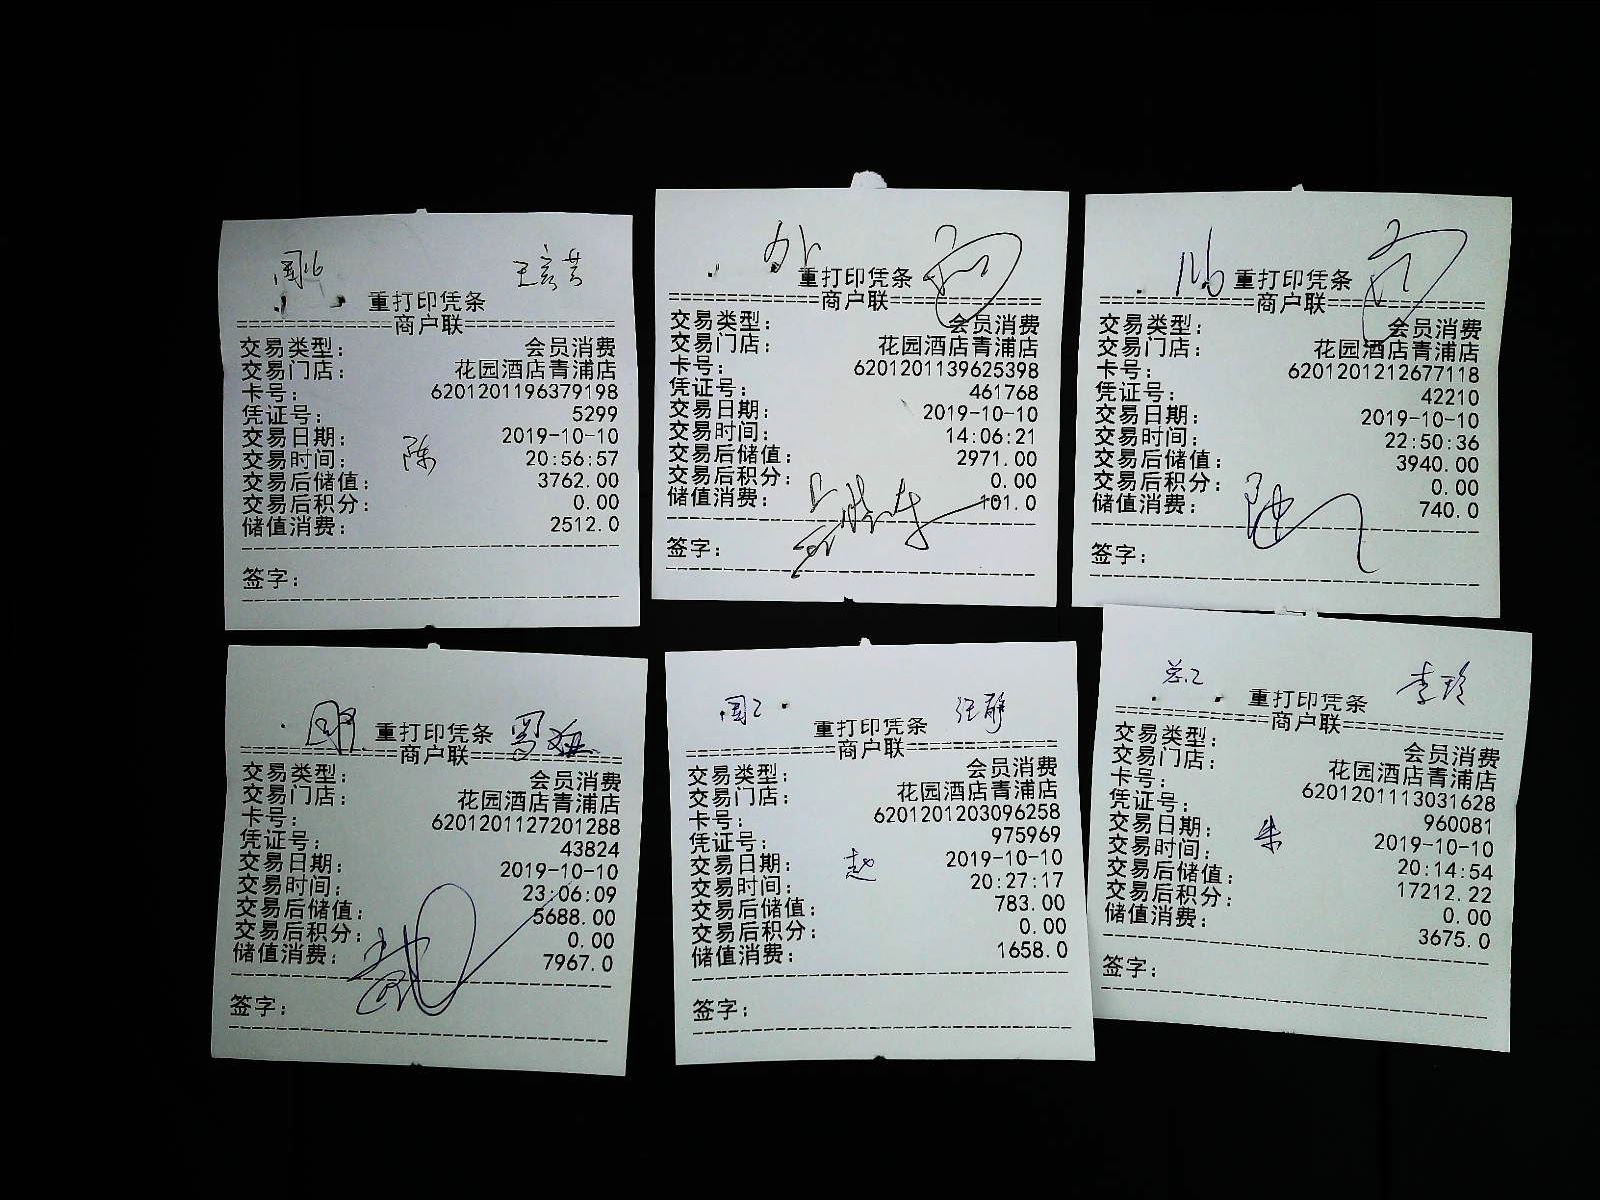 王芸芳
重打印凭条
================商户联================
交易类型: 会员消费
交易门店: 花园酒店青浦店
卡号: 6201201196379198
凭证号: 5299
交易日期: 2019-10-10
陈
交易时间: 20:56:57
交易后储值: 3762.00
交易后积分: 0.00
储值消费: 2512.0
签字:
外
重打印凭条
================商户联================
交易类型: 会员消费
交易门店: 花园酒店青浦店
卡号: 6201201139625398
凭证号: 461768
交易日期: 2019-10-10
交易时间: 14:06:21
交易后储值: 2971.00
交易后积分: 0.00
储值消费: 101.0
签字:
重打印凭条
================商户联================
交易类型: 会员消费
交易门店: 花园酒店青浦店
卡号: 6201201212677118
凭证号: 42210
交易日期: 2019-10-10
交易时间: 22:50:36
交易后储值: 3940.00
交易后积分: 0.00
储值消费: 740.0
签字:
重打印凭条
================商户联================
交易类型: 会员消费
交易门店: 花园酒店青浦店
卡号: 6201201127201288
凭证号: 43824
交易日期: 2019-10-10
交易时间: 23:06:09
交易后储值: 5688.00
交易后积分: 0.00
储值消费: 7967.0
签字:
汪静
重打印凭条
================商户联================
交易类型: 会员消费
交易门店: 花园酒店青浦店
卡号: 6201201203096258
凭证号: 975969
交易日期: 2019-10-10
赵
交易时间: 20:27:17
交易后储值: 783.00
交易后积分: 0.00
储值消费: 1658.0
签字:
李玲
重打印凭条
================商户联================
交易类型: 会员消费
交易门店: 花园酒店青浦店
卡号: 6201201113031628
凭证号: 960081
交易日期: 2019-10-10
朱
交易时间: 20:14:54
交易后储值: 17212.22
交易后积分: 0.00
储值消费: 3675.0
签字: